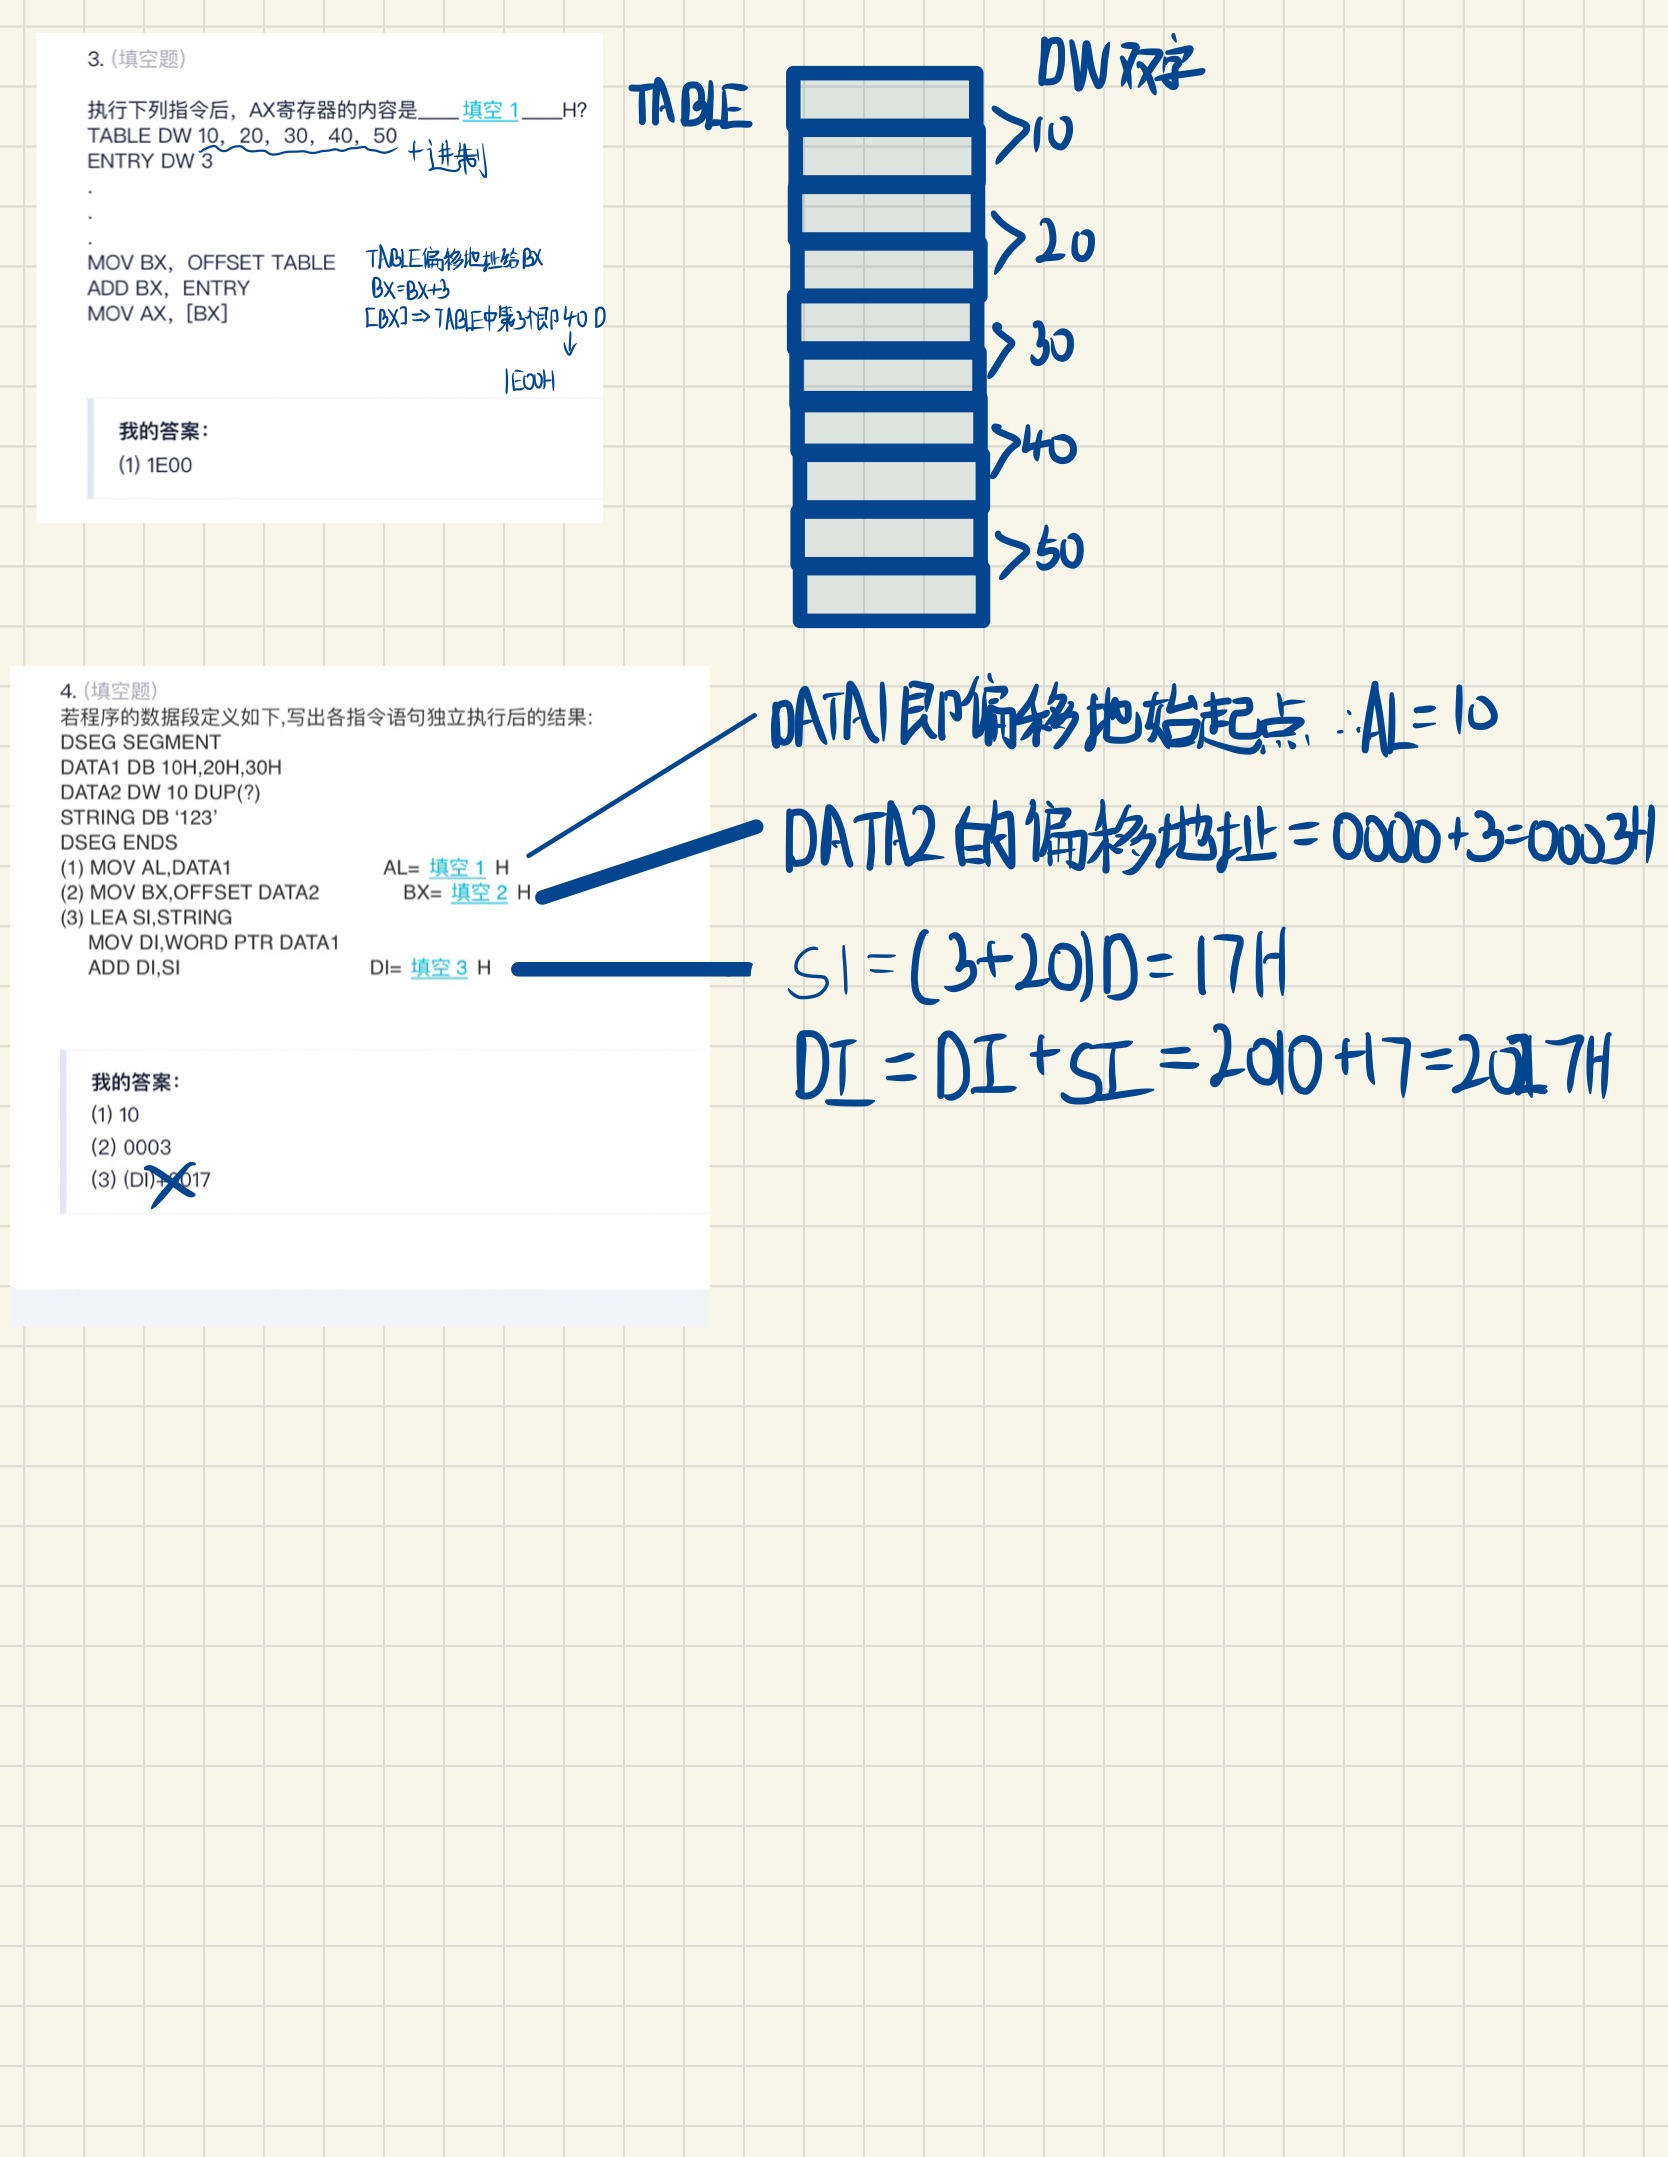 3. (填空题)
执行下列指令后，AX寄存器的内容是____填空 1____H?
TABLE DW 10，20，30，40，50
十进制
ENTRY DW 3
.
.
.
MOV BX，OFFSET TABLE
TABLE偏移地址给BX
ADD BX，ENTRY
BX=BX+3
MOV AX，[BX]
[BX]⇒TABLE中第3个即40D
↓
1E00H
我的答案：
(1) 1E00
TABLE
DW 双字
>10
>20
>30
>40
>50
4. (填空题)
若程序的数据段定义如下,写出各指令语句独立执行后的结果:
DSEG SEGMENT
DATA1 DB 10H,20H,30H
DATA2 DW 10 DUP(?)
STRING DB ‘123’
DSEG ENDS
(1) MOV AL,DATA1 AL= 填空 1 H
(2) MOV BX,OFFSET DATA2 BX= 填空 2 H
(3) LEA SI,STRING
MOV DI,WORD PTR DATA1
ADD DI,SI DI= 填空 3 H
DATA1即偏移地始起点 ∴AL=10
DATA2的偏移地址=0000+3=0003H
SI=(3+20)D=17H
DI=DI+SI=2010+17=2027H
我的答案：
(1) 10
(2) 0003
(3) (DI)+2017